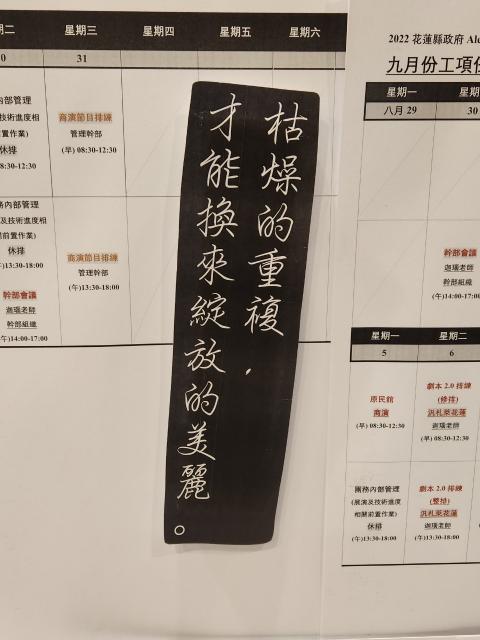 枯燥的重複，
才能換來綻放的美麗。
星期三
星期四
星期五
星期六
31
商演節目排練
管理幹部
(早) 08:30-12:30
內部管理
技術進度相
置作業)
休排
8:30-12:30
務內部管理
及技術進度相
關前置作業)
休排
午)13:30-18:00
幹部會議
迦瑙老師
幹部組織
午)14:00-17:00
商演節目排練
管理幹部
(午)13:30-18:00
2022 花蓮縣政府
九月份工項
星期一
八月 29
30
幹部會議
迦瑙老師
幹部組織
(午)14:00-17:00
星期一
星期二
5
6
原民館
商演
(早) 08:30-12:30
劇本 2.0 排練
(修排)
汎札萊花蓮
迦瑙老師
(早) 08:30-12:30
團務內部管理
(展演及技術進度
相關前置作業)
休排
(午)13:30-18:00
劇本 2.0 排練
(整排)
汎札萊花蓮
迦瑙老師
(午)13:30-18:00